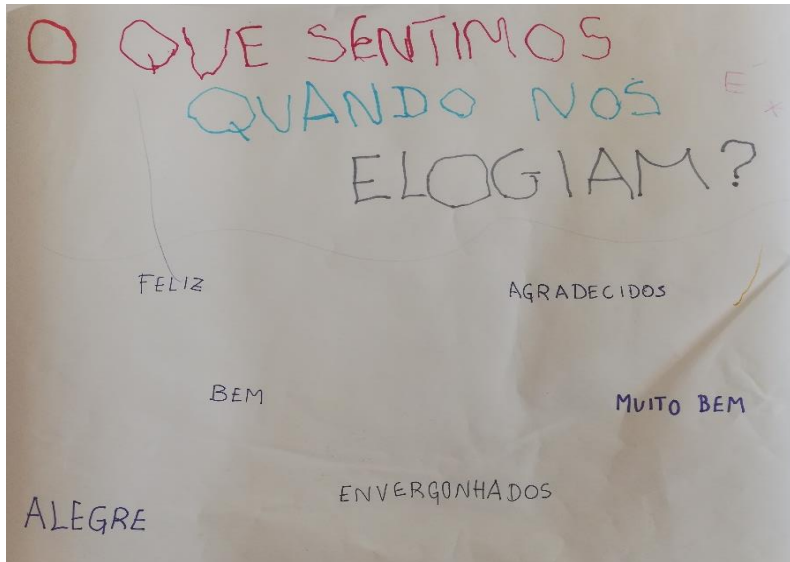 O QUE SENTIMOS
QUANDO NOS
ELOGIAM?
FELIZ
AGRADECIDOS
BEM
MUITO BEM
ENVERGONHADOS
ALEGRE